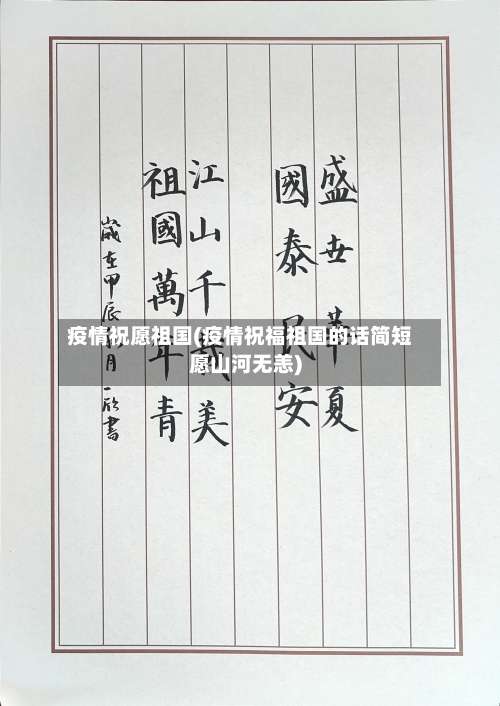 盛世華夏
國泰民安
江山千載美
祖國萬年青
歲在甲辰月一欣書
疫情祝愿祖国(疫情祝福祖国的话简短
愿山河无恙)